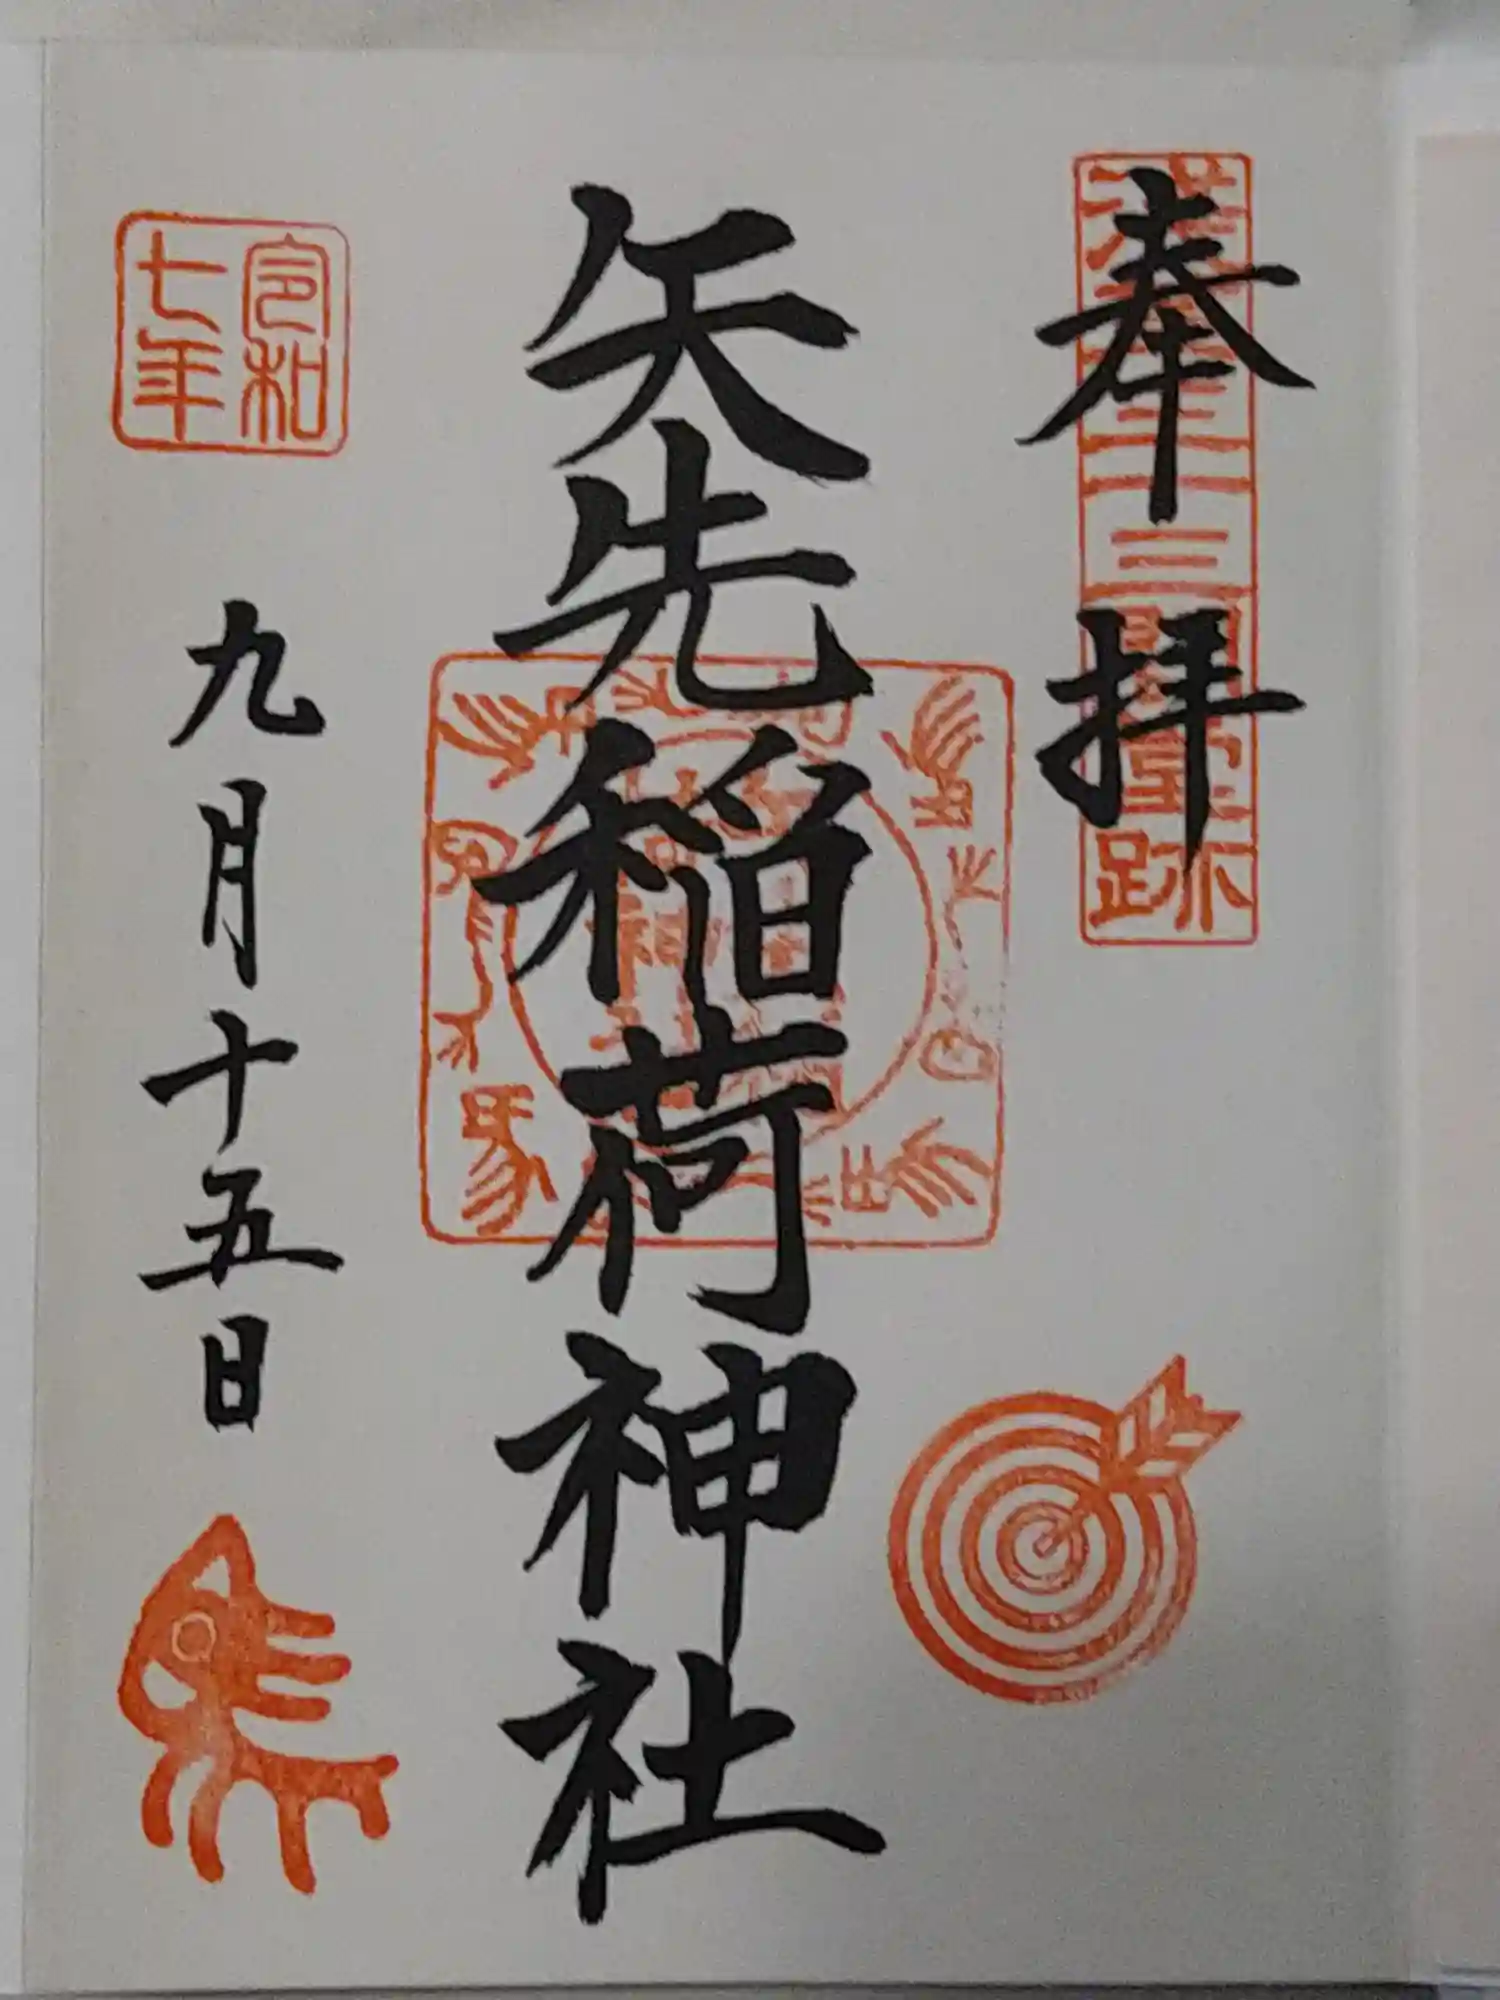 奉拝
矢先稲荷神社
令和
七年
九月十五日